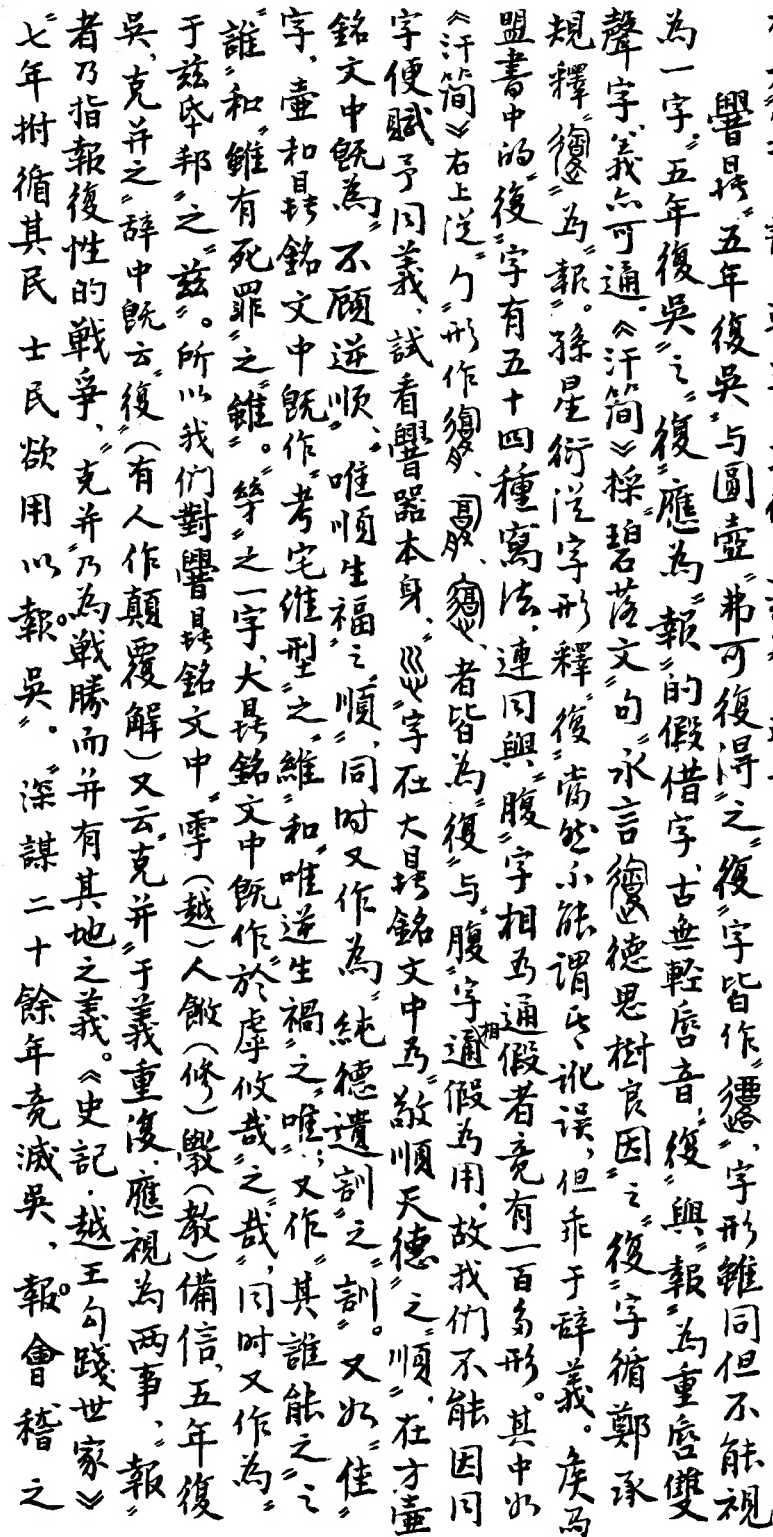 譽鼎“五年復吳”与圓壺“弗可復得”之“復”字皆作“”，字形雖同但不能視
為一字。“五年復吳”之“復”應為“報”的假借字、古無輕唇音，“復”與“報”為重唇雙
聲字、義亦可通。《汗简》採碧落文句“永言德思樹良因”之“復”字循鄭承
規釋“”为“報”。孫星衍從字形釋“復”當然不能謂之訛误，但乖于辞義。侯馬
盟書中的“復”字有五十四種寫法，連同與“腹”字相为通假者竟有一百多形。其中如
《汗简》右上从“勹”形作、、、者皆為“復”与“腹”字相通假为用。故我们不能因同
字便賦予同義，試看譽器本身，“”字在大鼎銘文中为“敬順天德”之“順”，在方壺
銘文中既為“不顧逆順”、“唯順生福”之“順”，同时又作為“純德遺訓”之“訓”。又如“隹”
字，壺和鼎銘文中既作“考宅維型”之“維”和“唯逆生禍”之“唯”；又作“其誰能之”之
“誰”和“雖有死罪”之“雖”。“”之一字，大鼎銘文中既作“於虖攸哉”之“哉”，同时又作為“
于兹氒邦”之“兹”。所以我们對譽鼎銘文中“雩（越）人（修）斆（教）備信，五年復
吳，克并之”辞中既云“復”（有人作顛覆解）又云“克并”于義重復，應視為两事，“報”
者乃指報復性的戰爭，“克并”乃為戰勝而并有其地之義。《史記·越王勾踐世家》
“七年拊循其民 士民欲用以報吳”。“深謀二十餘年竟滅吳，報會稽之